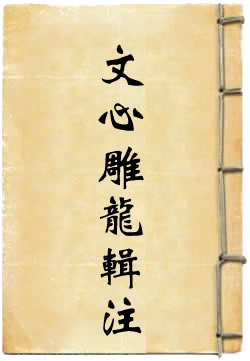 文心雕龍輯注